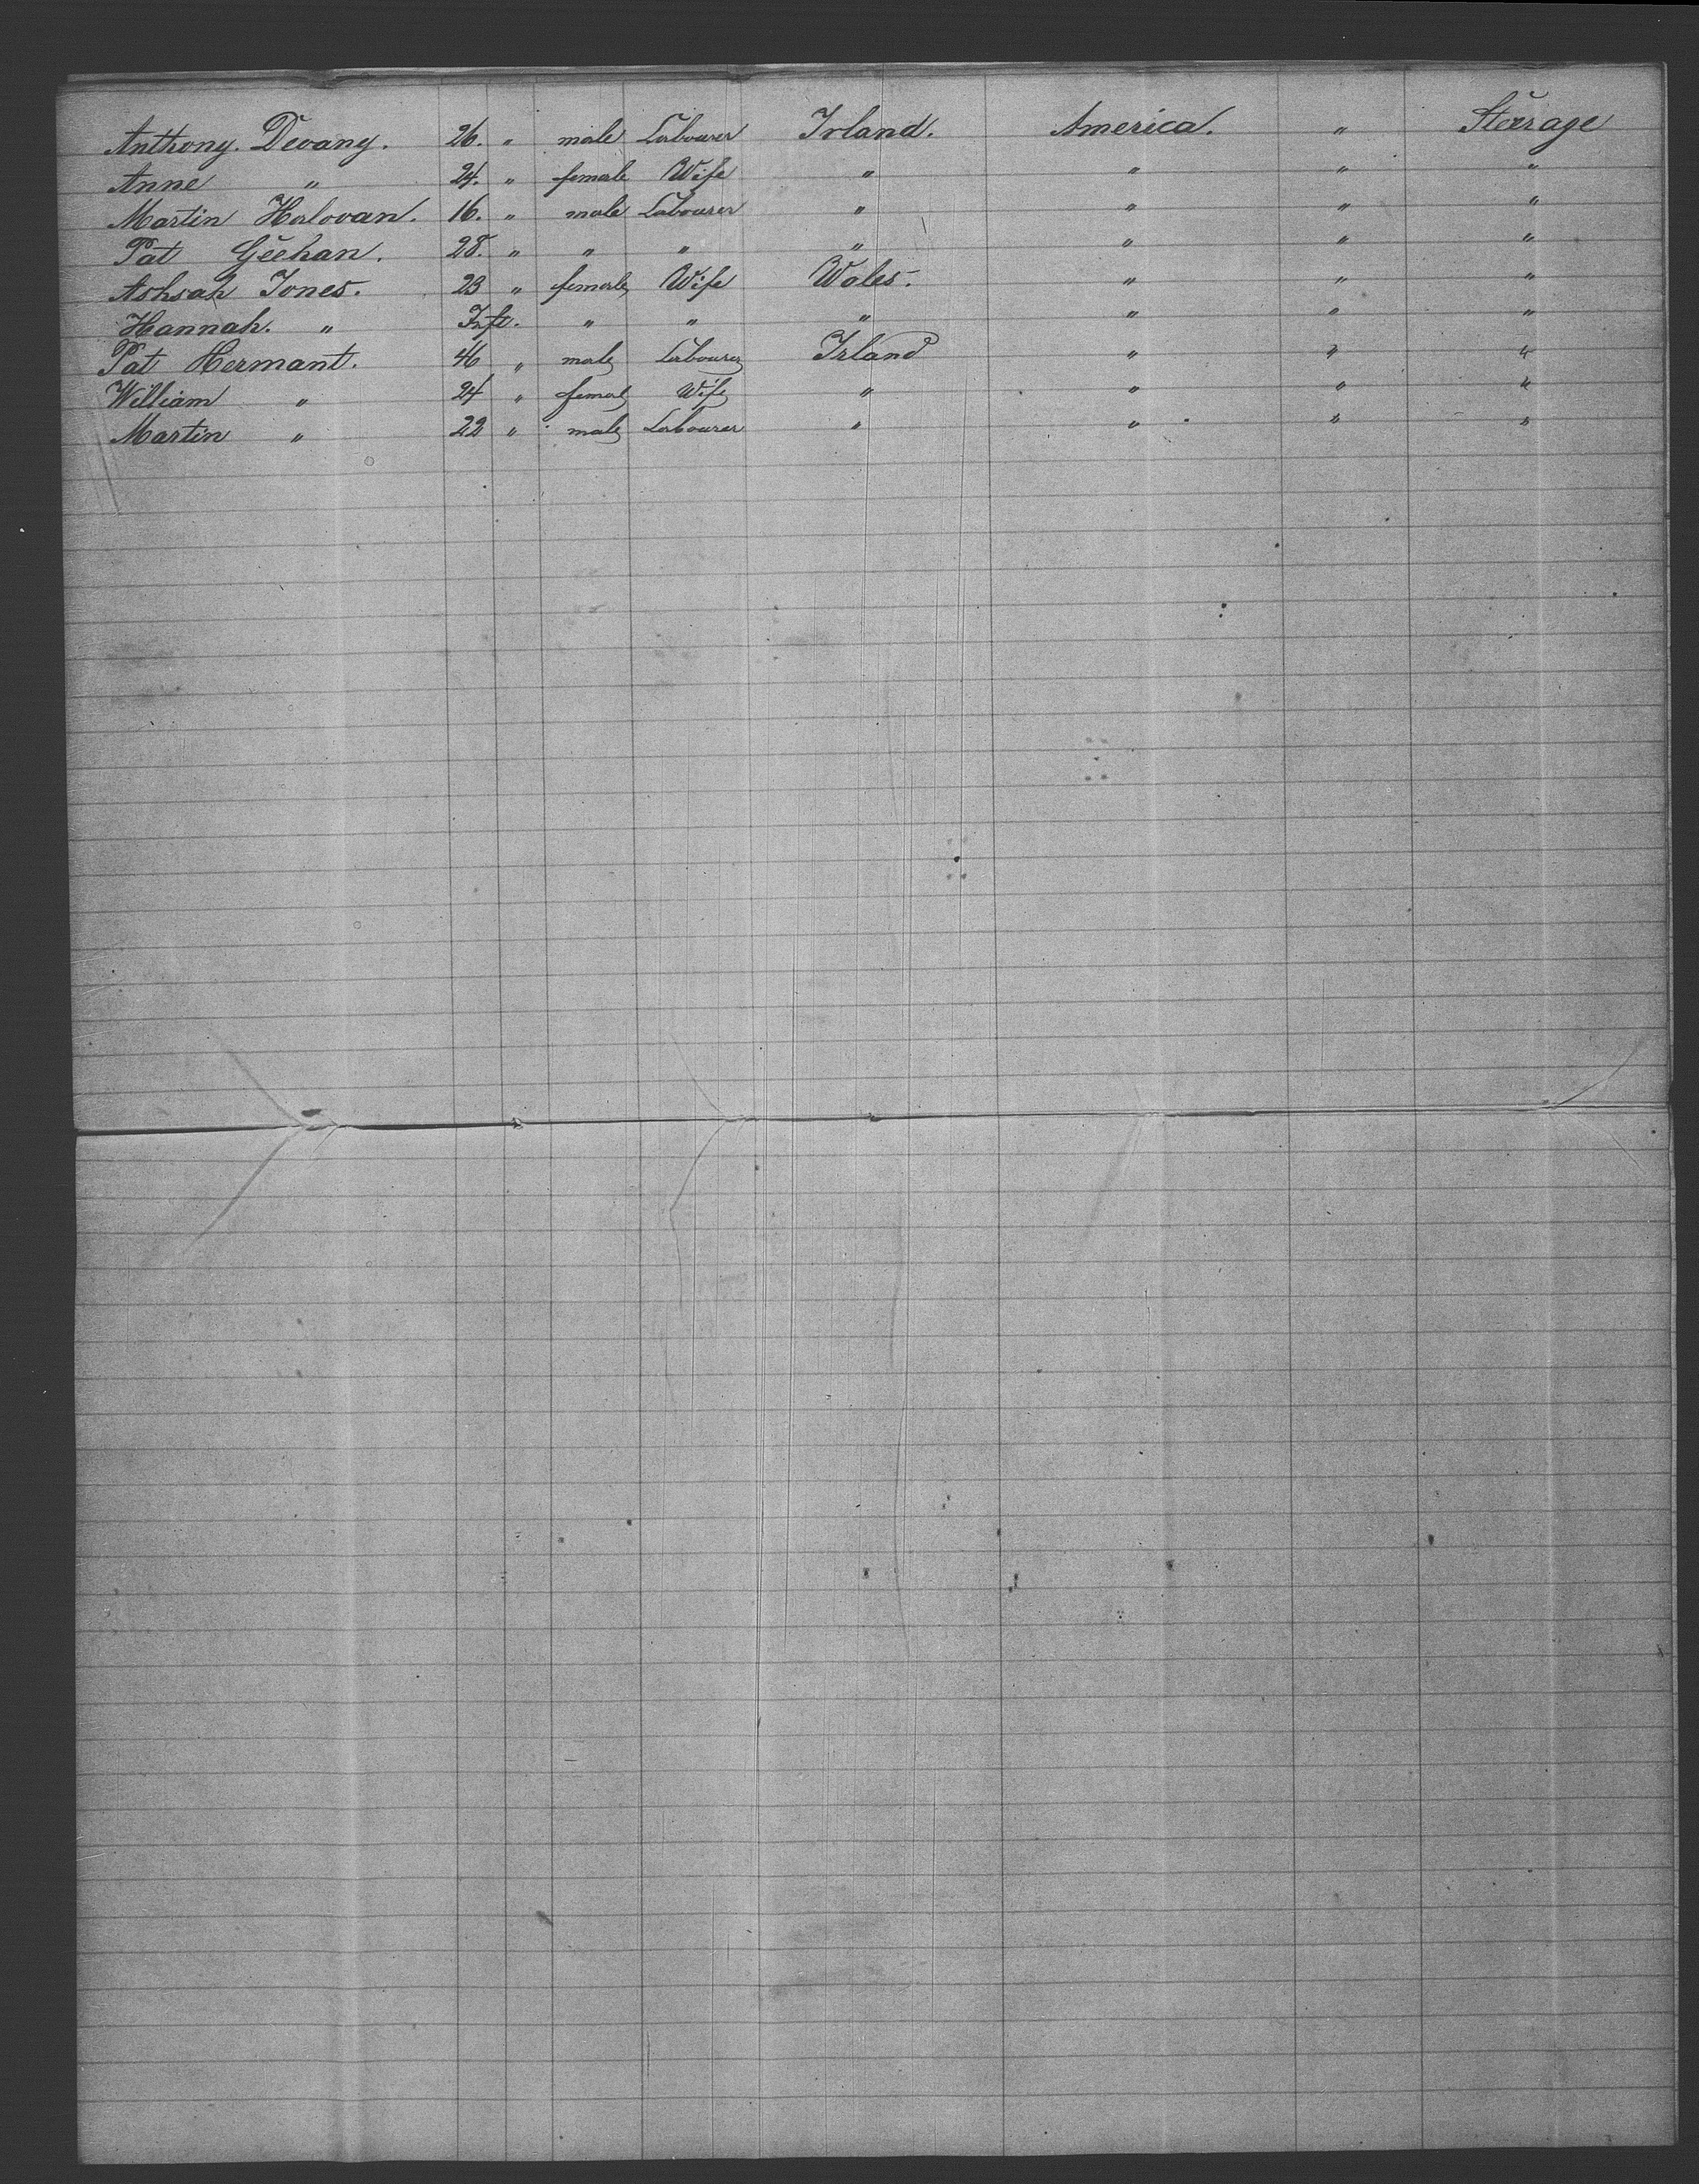 Anthony. Devany. 26. " male Labourer Irland. America. " Steerage
Anne " 24. " female Wife " " " "
Martin Halovan. 16. " male Labourer " " " "
Pat Geehan. 28. " " " " " " "
Ashsah Jones. 23 " female Wife Wales. " " "
Hannah. " Inft. " " " " " "
Pat Hermant. 46 " male Labourer Irland " " "
William " 24 " female Wife " " " "
Martin " 22 " male Labourer " " " "